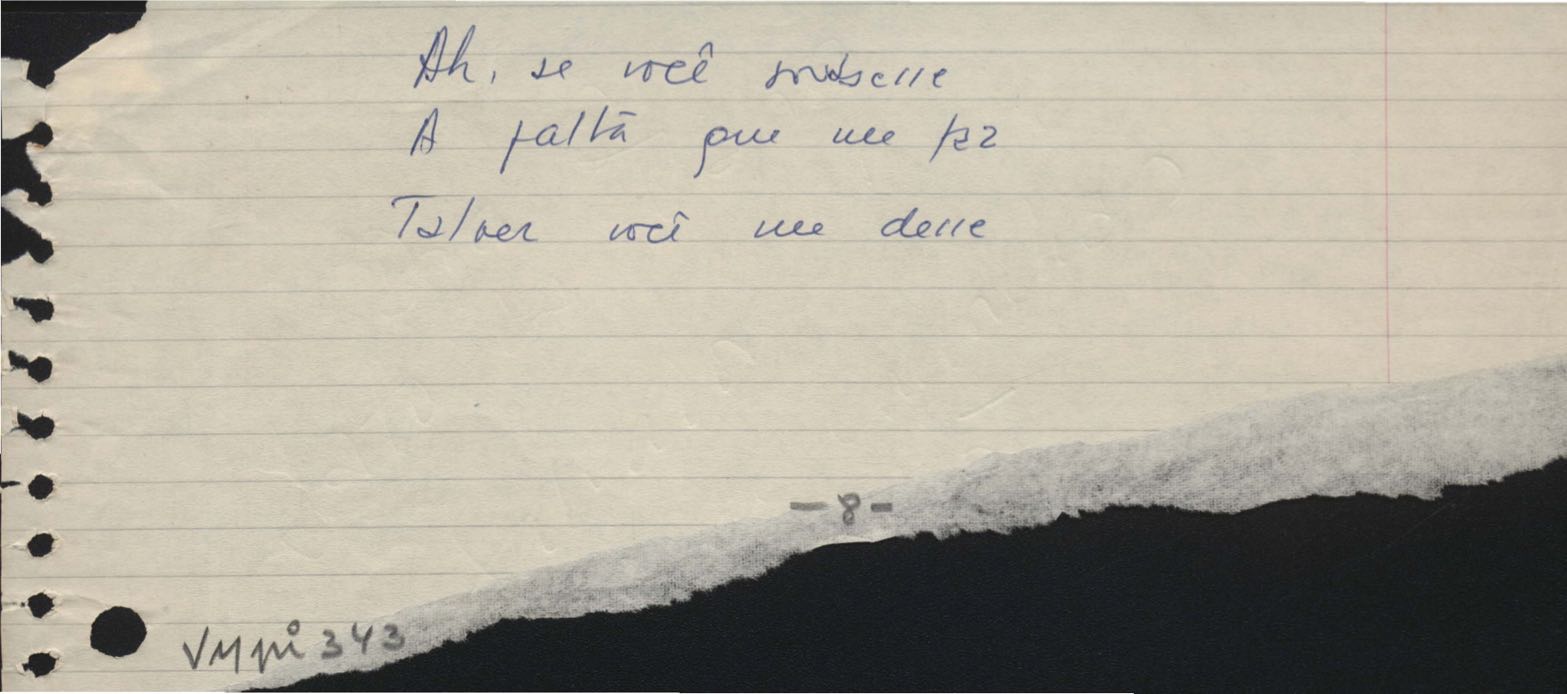 Ah, se você soubesse
A falta que me faz
Talvez você me desse
- 8 -
VMpi 343